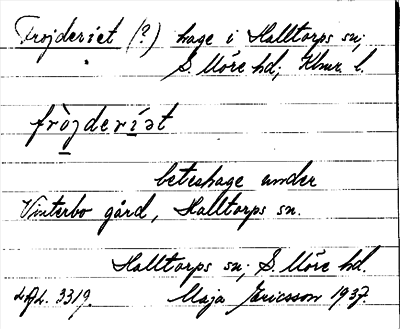 Frojderiet (?) hage i Halltorps sn;
S. Möre hd; Klmr l.
fròjderíət
beteshage under
Vinterbo gård, Halltorps sn.
Halltorps sn; S. Möre hd.
LAL. 3319. Maja Ericsson 1937.